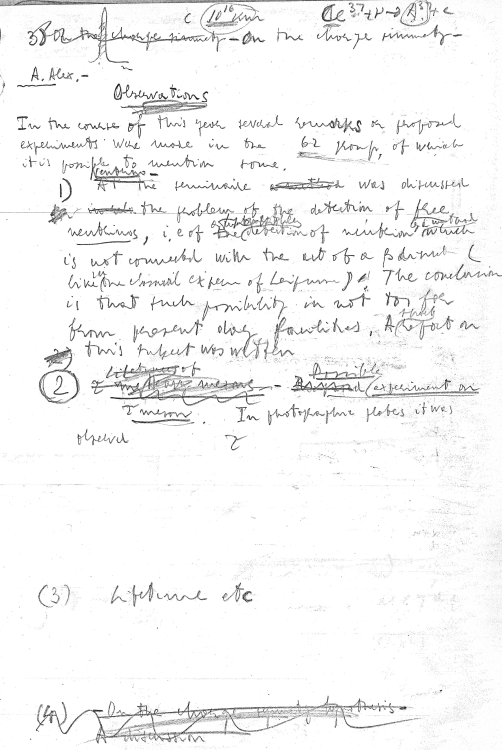 c 10^16 Cl^37 + ν → A^37 + e
3) On the charge simmetry - On the charge simmetry -
A. Alex. -
Observations
In the course of this year several remarks or proposed
experiments were made in the 62 group, of which
it is possible to mention some.
1) Neutrinos -
At the seminaire was discussed
the problem of the detection of free
neutrinos, i.e. of the detection of neutrion which
is not connected with the act of a β disint (
like in the classical experim of Leipunski) . The conclusion
is that such possibility in not too far
from present day facilities. A report on
this subject was written
2 Lifetime of
τ meson - Possible experiment on
τ meson. In photographic plates it was
observed τ
(3) Lifetime etc
(4) - On the charge simmetry hypothesis -
A discussion